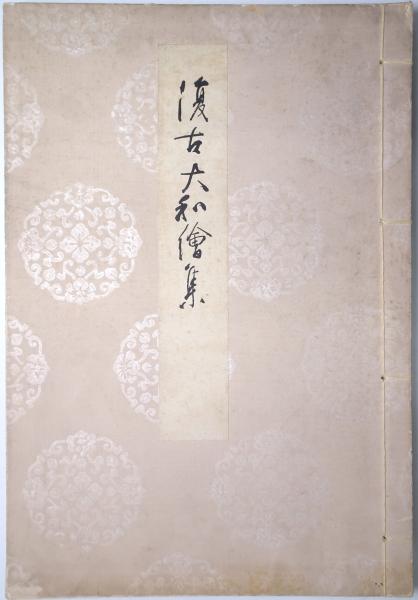 復古大和繪集